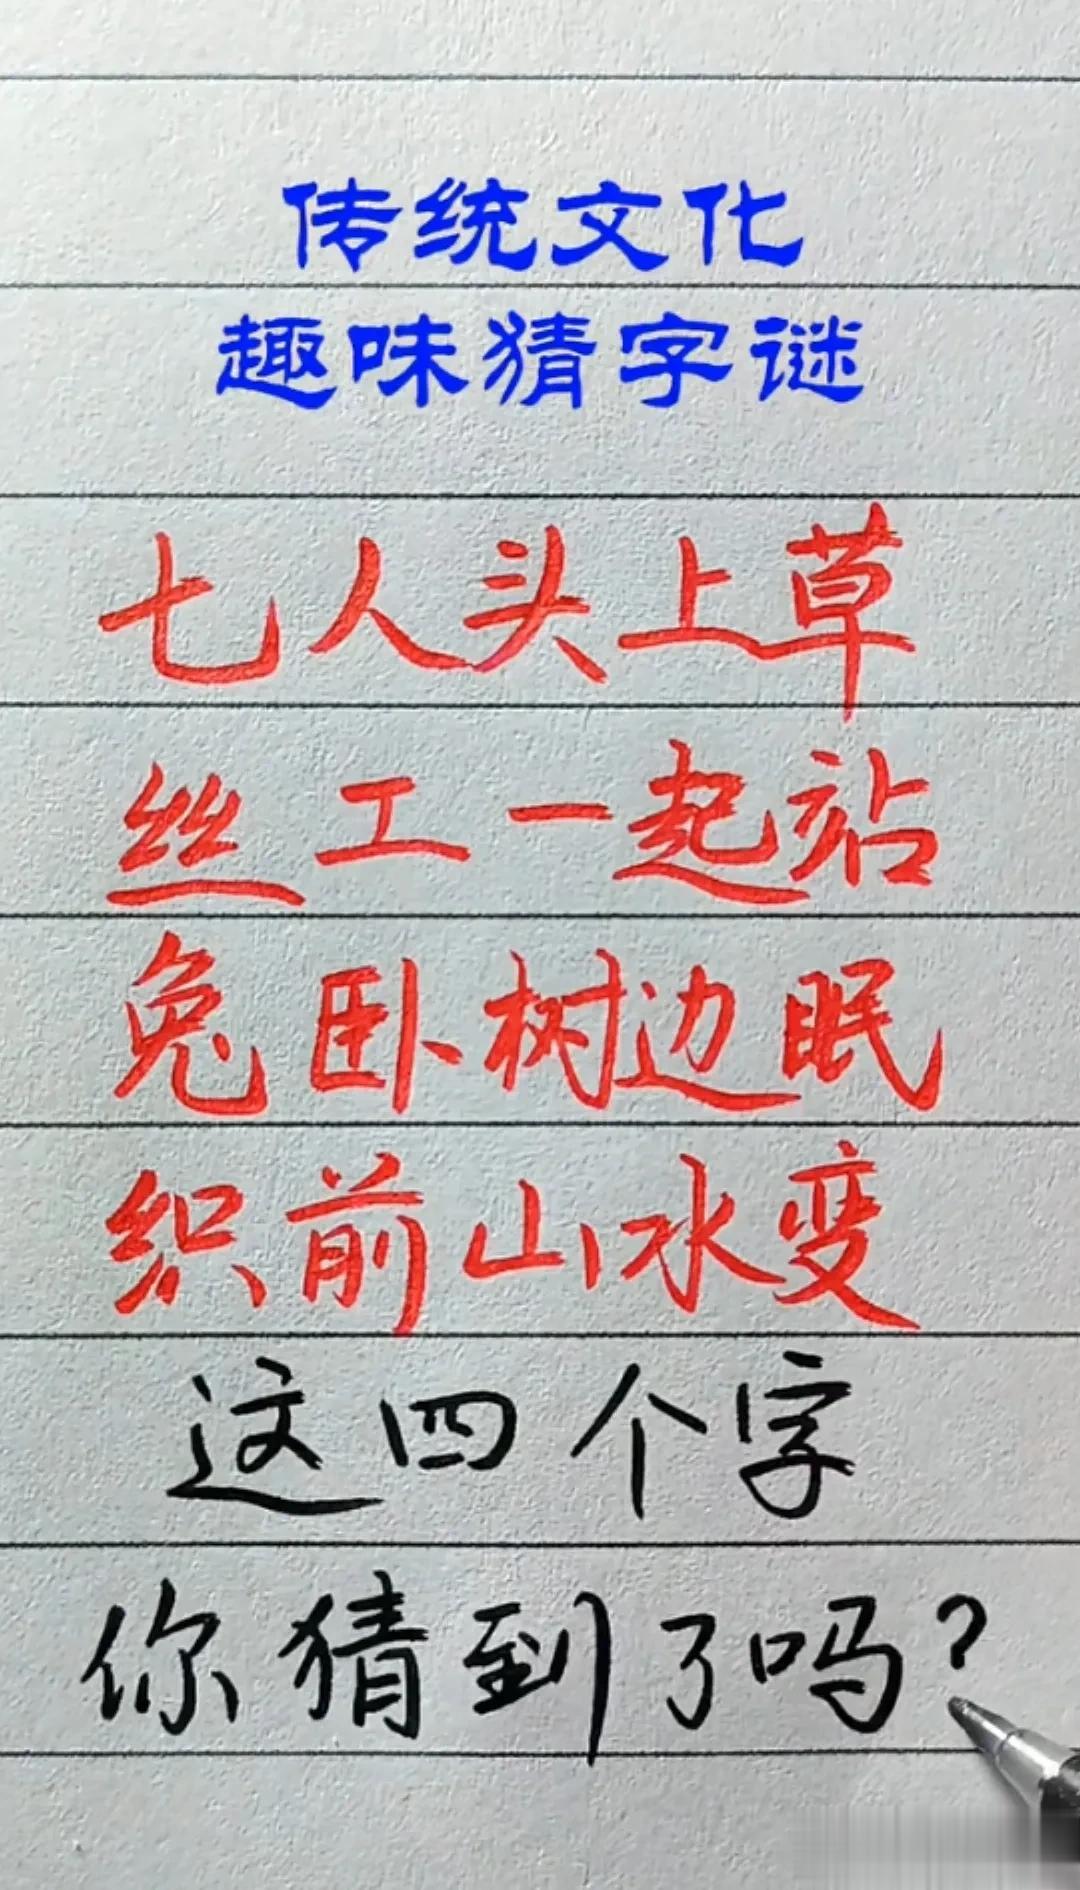 传统文化
趣味猜字谜
七人头上草
丝工一起站
兔卧树边眠
织前山水变
这四个字
你猜到了吗?